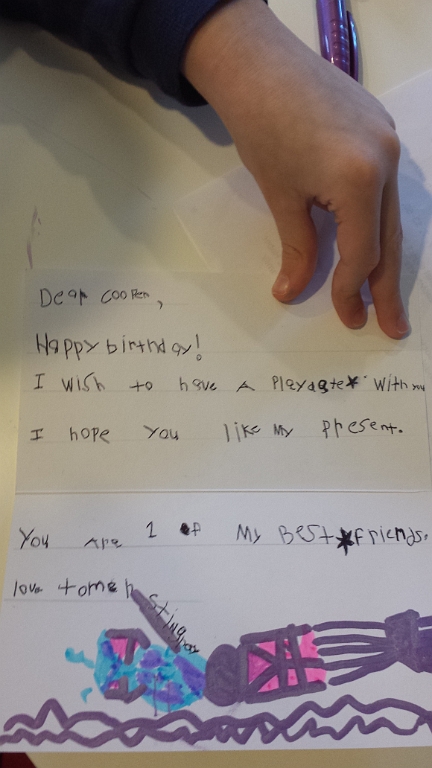 Dear Cooper,
Happy birthday!
I wish to have A Playdate with my
I hope you like My present.
You Are 1 of My Best friends.
love tomen
Stingray